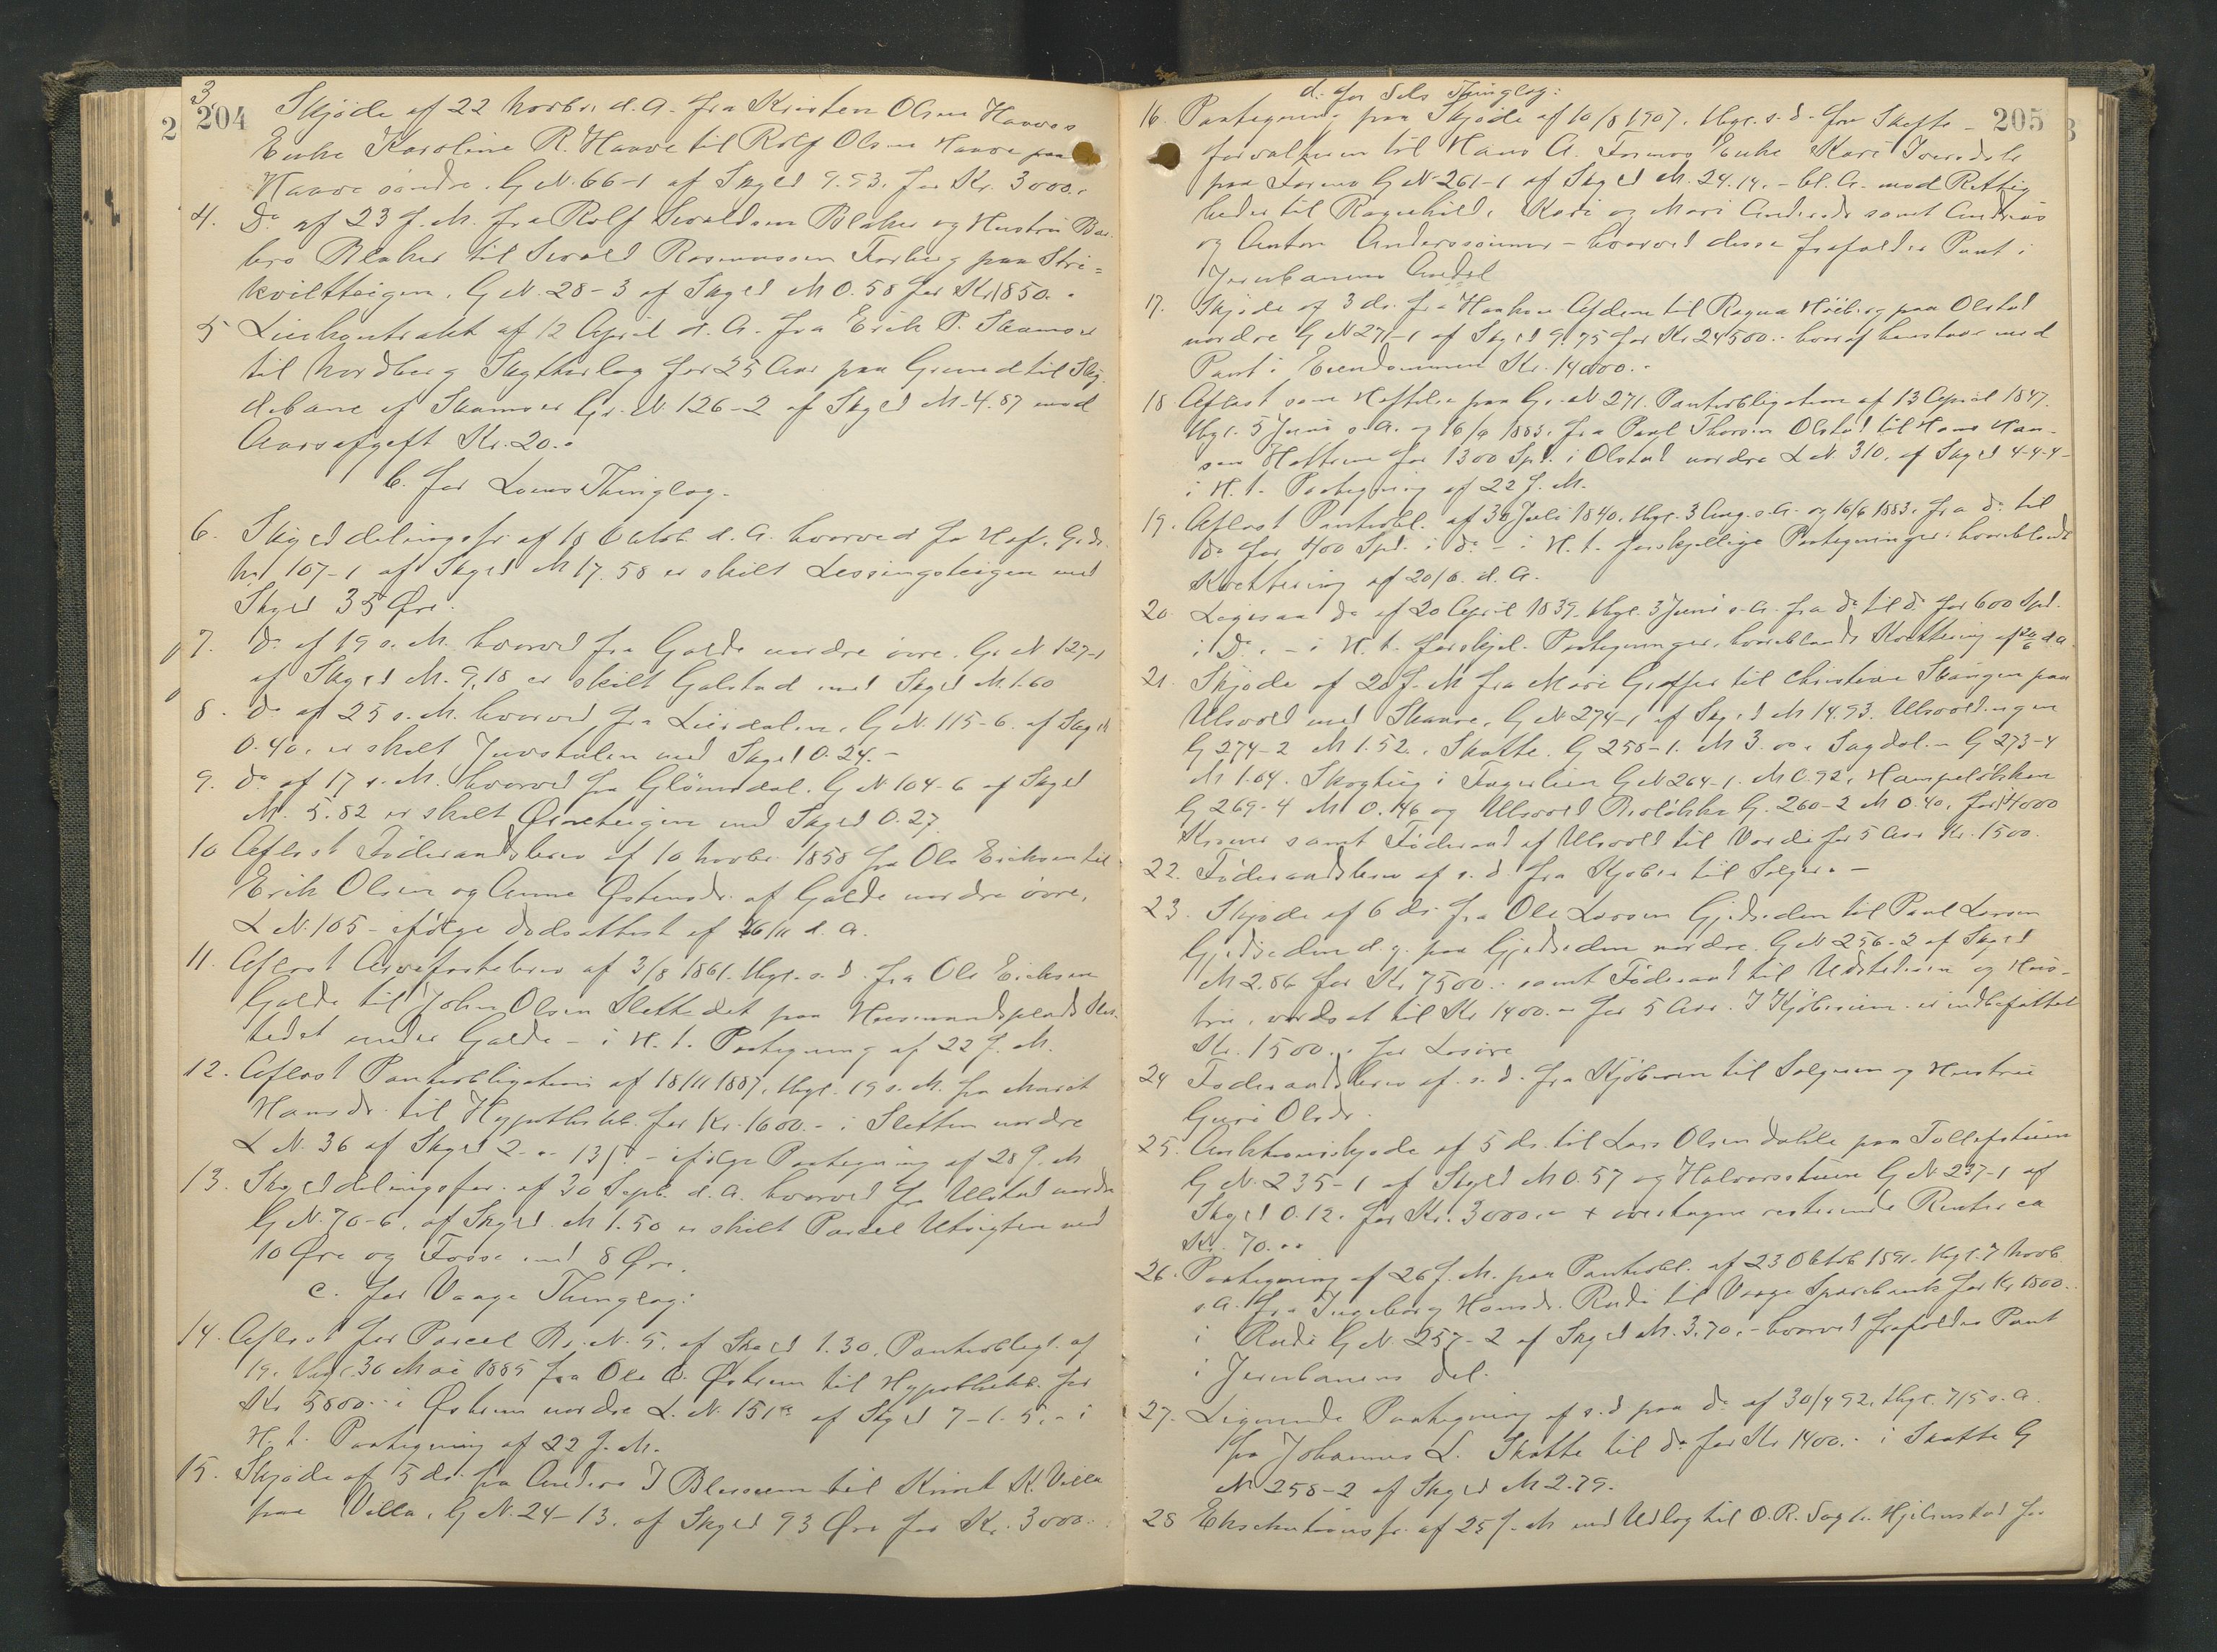 204
3. Skjøde af 22 Novbr. d. A. fra Kristen Olsen Haaves
Enke Karoline R. Haave til Rolf Olsen Haave paa
Haave søndre. G N. 66-1 af Skyld 9.93. for Kr. 3000..
4. Do af 23 f. M. fra Rolf Sevaldsen Blaker og Hustru Bar-
bro Blaker til Sevald Rasmussen Forberg paa Stri=
kviltteigen. G N. 28-3 af Skyld M 0.58 for Kr. 850..
5 Leiekontrakt af 12 April d. A. fra Erik P. Skamsar
til Nordberg Skytterlag for 25 Aar paa Grund til Sky-
debane af Skamsar Gr. N. 126-2 af Skyld M. 4.87 mod
Aarsafgift Kr. 20..
b. for Loms Thinglag.
6. Skylddelingsfr. af 18 Octob. d. A. hvorved fra
N 107-1 af Skyld M 17.58 er skilt Lessingsteigen med
Skyld 35 Øre.
7. Do af 19 s. M. hvorved fra Galde nordre øvre. Gr N 127-1
af Skyld M. 9,18 er skilt Galstad med Skyld M. 1.60
8. Do af 25 s. M. hvorved fra Leirdalen. G N. 115-6. af Skyld
0.40. er skilt Juvstulen med Skyld 0.24.-
9. Do af 17 s. M. hvorved fra Glømsdal. G N 104-6 af Skyld
M. 5.82 er skilt Øineteigen med Skyld 0.27
10 Aflæst Føderaadsbrev af 10 Novbr. 1858 fra Ole Eriksen til
Erik Olsen og Anne Østensdr. af Galde nordre øvre.
L N. 105 - ifølge Dødsattest af 26/11 d. A.
11. Aflæst Arvefæstebrev af 3/8 1861. thgl. s. d. fra Ole Eriksen
Galde til John Olsen Slettedet paa Husmandsplads Slet-
tedet under Galde - i H. t. Paategning af 22 f. M.
12. Aflæst Pantobligation af 18/11 1887. thgl. 19 s. M. fra Marit
Hansdr. til Hypothekb. for Kr. 1600.- i Sletten nordre
L N. 36 af Skyld 2 - " - 13 f. - ifølge Paategning af 28 f. M
13. Skylddelingsfor. af 30 Septb. d. A. hvorved fra Ulstad nordre
G N. 70-6. af Skyld M 1.50 er skilt Parcel Utsigten med
10 Øre og Fosse med 8 Øre.
c. for Vaage Thinglag:
14. Aflæst for Parcel Br. N. 5. af Skyld 1.30. Pantobligt. af
19. thgl. 30 Mai 1885 fra Ole O. Øihrum til Hypothekb. for
Kr 5800.. i nordre L. N. 151a af Skyld 7-1-5.- i
H. t. Paategning af 22 f. M.
15. Skjøde af 5 ds. fra Anders I Blessum til Knut K. Villa
paa Villa. G N. 24-13. af Skyld 93 Øre for Kr. 3000..
205
d. for Sels Thinglag:
16. Paategning paa Skjøde af 10/8 1907. thgl. s. d. fra Skifte-
forvalteren til Hans A. Formos Enke Kari Iversdtr
paa Formo G N 261-1 af Skyld M. 24.14. - bl. A. med Rettig
heder til Ragnhild, Kari og Mari Andersdr samt Andreas
og Anton Anderssønner - hvorved disse frafalder Pant i
Jernbanens Andel
17. Skjøde af 3 ds. fra Haakon til Ragna Høiberg paa Olstad
nordre G N 271-1 af Skyld 9.75 for Kr 24500.. hvoraf henstaar med
Pant i Eiendommen Kr. 14000..
18 Aflæst som Heftelse paa G. N 271. Pantobligation af 13 April 1847.
thgl. 5 Juni s. A. og 16/6 1883. fra Paul Thorsen Olstad til Hans Han-
sen for 1300 Spd. i Olstad nordre L N. 310. af Skyld 4-4-4-
i H. t. Paategning af 22 f. M.
19. Aflæst Pantobl. af 30 Juli 1840. thgl. 3 Aug. s. A. og 16/6 1883. fra Do til
Do for 400 Spd. i Do - i H. t. forskjellige Paategninger. hvoriblandt
Kvittering af 20/6. d. A.
20. Ligesaa Do af 20 April 1839. thgl. 3 Juni s. A. fra Do til Do for 600 Spd.
i Do. - i H. t. forskjel. Paategninger, hvoriblandt Kvittering af 20/6 d. A.
21. Skjøde af 20 f. M fra Mari Graffer til Christine Skaugen paa
Ulsvold med Skaare. G N 274-1 af Skyld M 14.93. Ulsvoldengen
G 274-2 M 1.52.. Skotte. G 258-1. M 3.00. Sagdal.- G 273-4
M 1.64. Skogteig i Fagerlien G N 264-1. M 0.92. Hampeløkken
G 269-4 M 0.146 og Ulsvold G. 260-2 M 0.40. for 14000
Kroner samt Føderaad af Ulsvold til Værdi for 5 Aar Kr. 1500.
22. Føderaadsbrev af s. d fra Kjøber til Sælger. -
23. Skjøde af 6 ds. fra Ole Larsen Gjedseden til Paul Larsen
Gjedseden d. y. paa Gjedseden nordre. G N 256-2 af Skyld
M 2.86 for Kr 7500.. samt Føderaad til Udstederen og Hus-
tru. værdsat til Kr 1400.- for 5 Aar. I Kjøbesum. er indbefattet
Kr. 1500.. for Løsøre
24 Føderaadsbrev af. s. d. fra Kjøberen til Sælgeren og Hustru
Guri Olsdr.
25. Auktionsskjøde af 5 ds til Lars Olsen Dahle paa Tollefstuen
G N. 235-1 af Skyld M 0.57 og Halvorsstuen G N 237-1 af
Skyld 0.12. for Kr. 3000.- + overtagne resterende Renter ca
Kr. 70...
26. Paategning af 26 f. M. paa Pantobl. af 23 Oktob 1891. thgl. 7 Novb
s A. fra Ingeborg Hansdr. Rudi til Vaage Sparebank for Kr 1800..
i Rudi G N. 257-2 af Skyld M. 3.70. - hvorved frafaldes Pant
i Jernbanens Del.
27. Lignende Paategning af s. d paa Do af 30/4 92. thgl. 7/5 s. A.
fra Johannes L. Skotte til Do for Kr 1400.- i Skotte G
N 258-2 af Skyld M 2.79.
28 Eksekutionsfr. af 25 f. M med Udlæg til O. R. Sagfr. Hjelmstad for